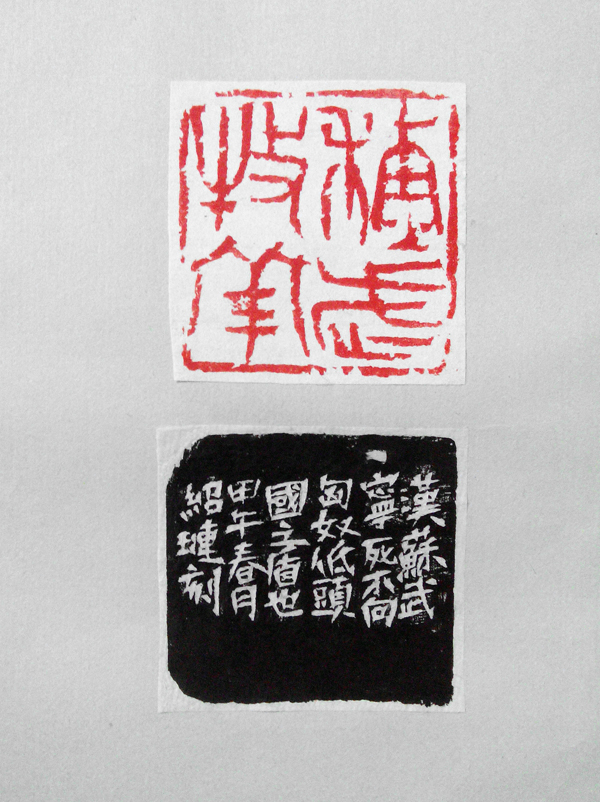 穌武
牧羊
漢蘇武
寧死不向
匈奴低頭
國之盾也
甲午春月
紹璉刻